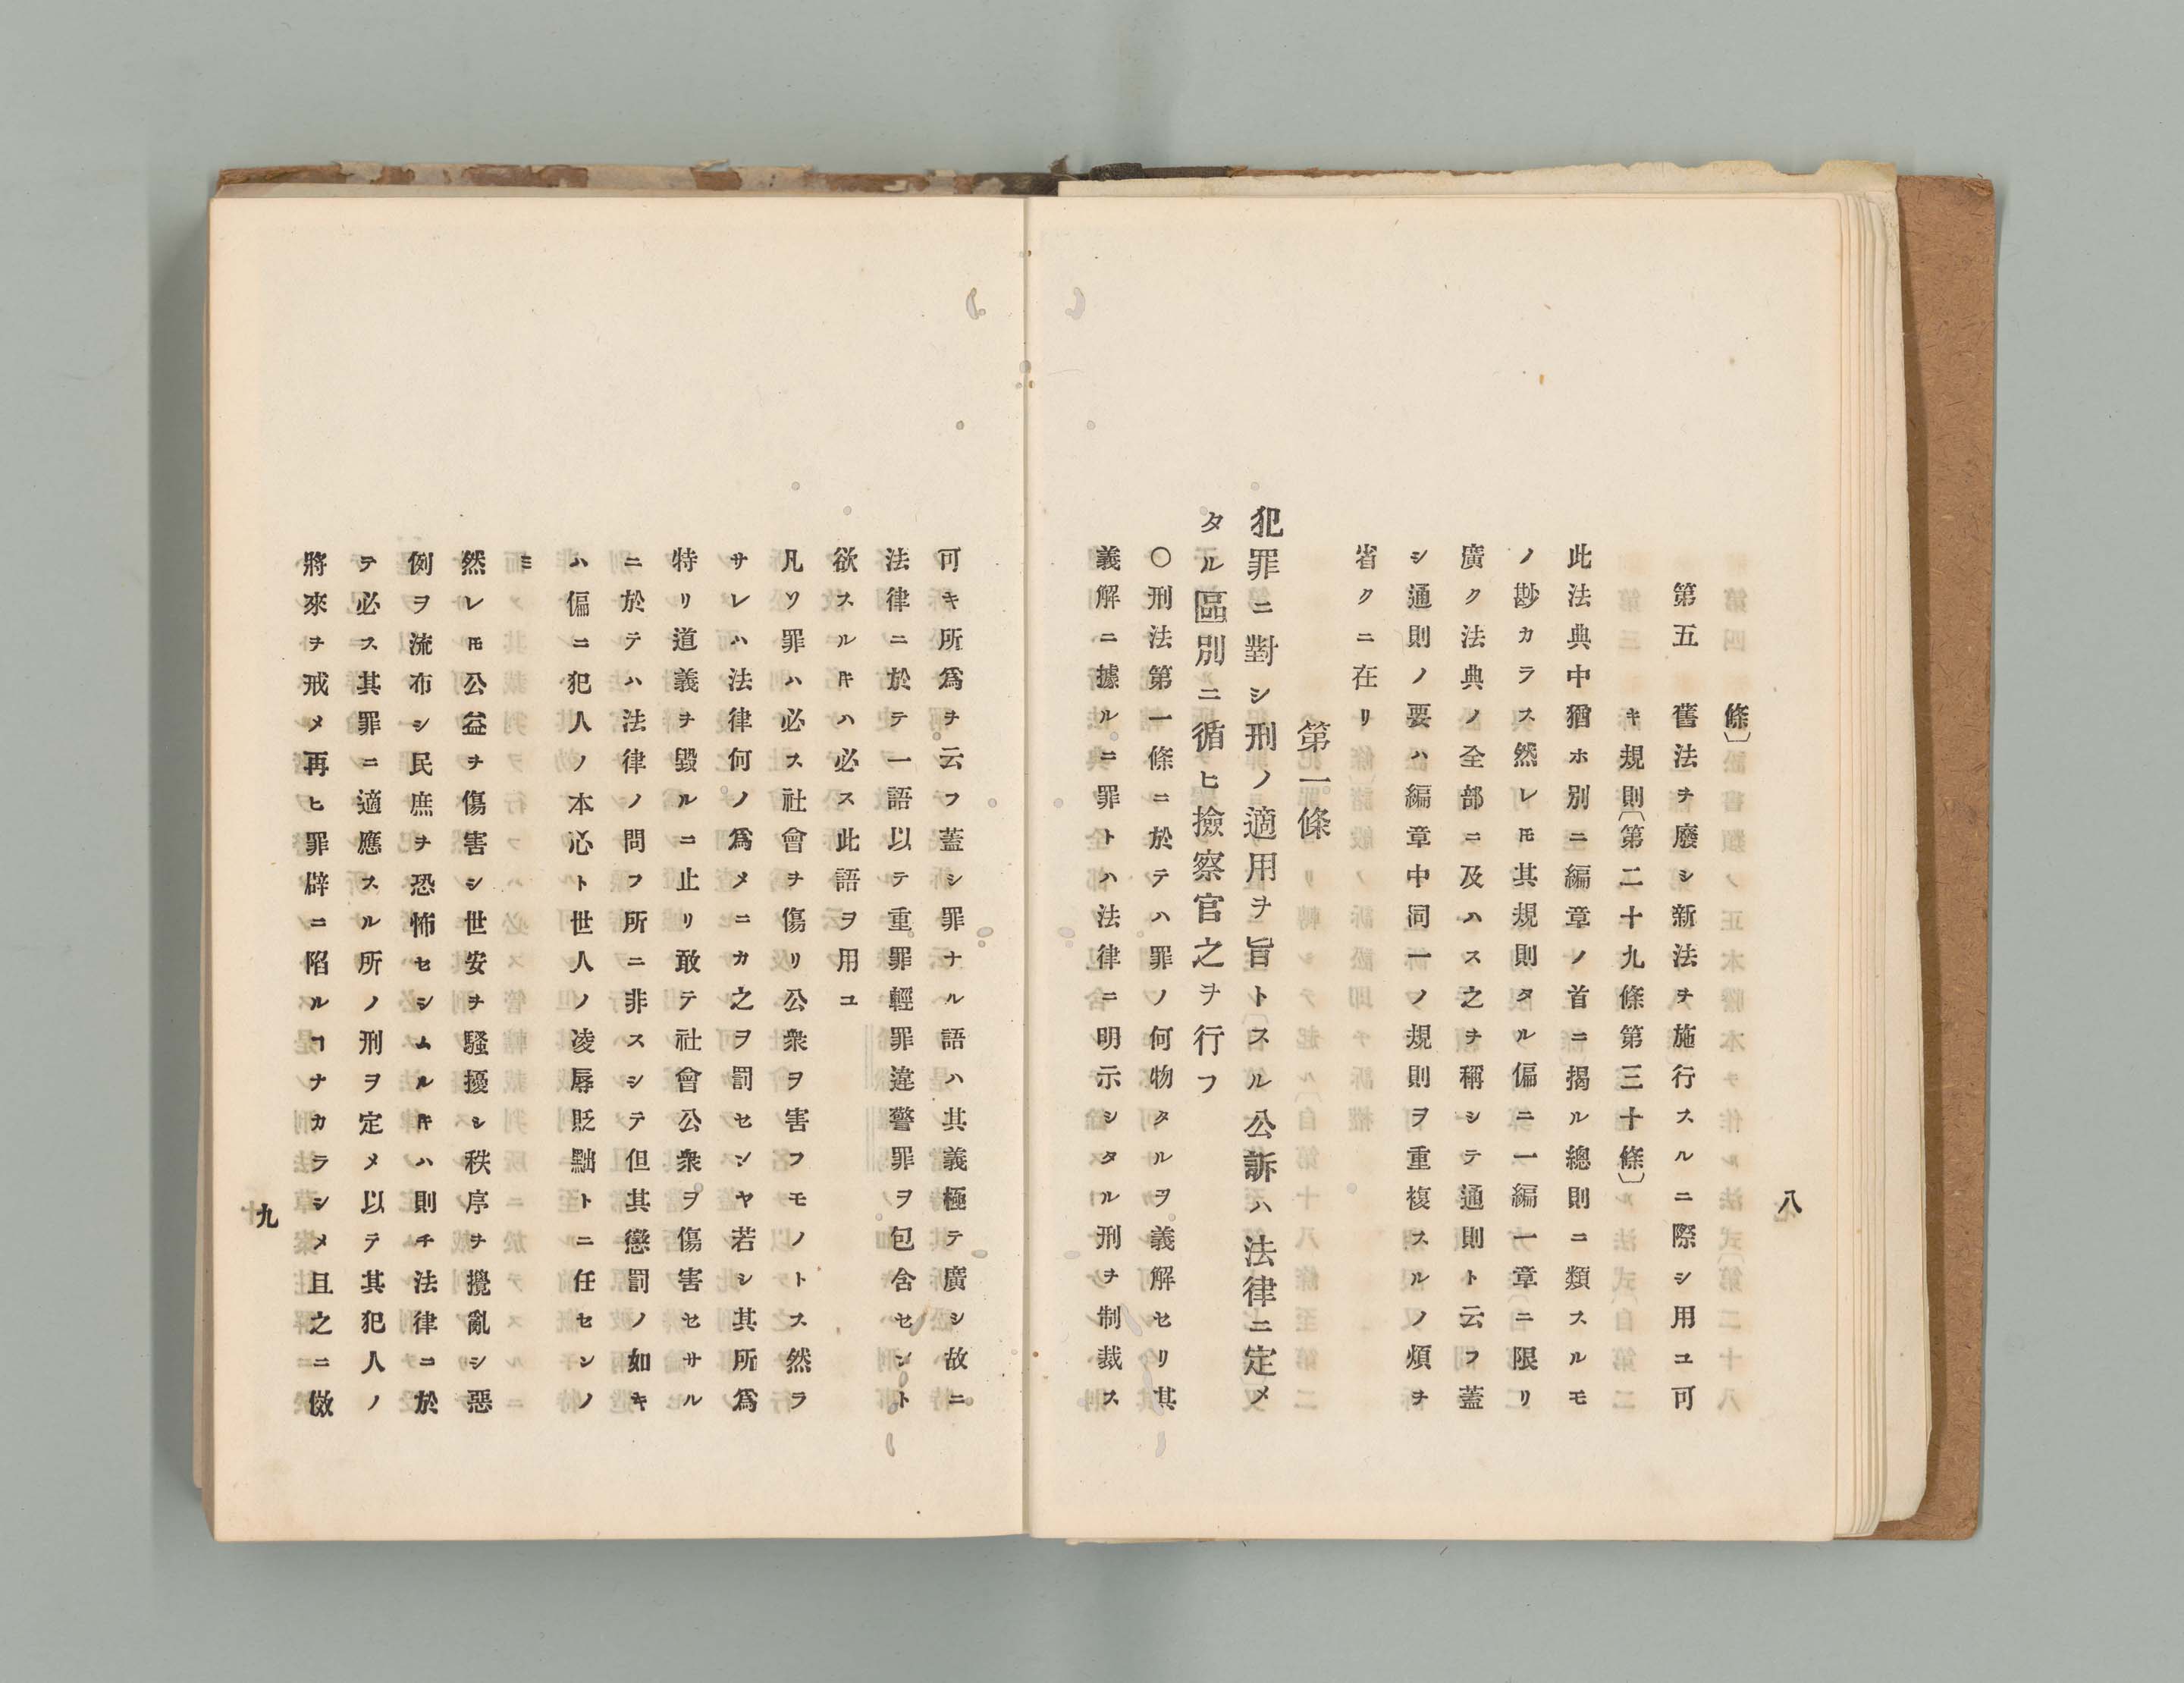 八
條〕
第五 舊法ヲ廢シ新法ヲ施行スルニ際シ用ユ可
キ規則〔第二十九條第三十條〕
此法典中猶ホ別ニ編章ノ首ニ揭ル總則ニ類スルモ
ノ尠カラス然レ𪜈其規則タル偏ニ一編一章ニ限リ
廣ク法典ノ全部ニ及ハス之ヲ稱シテ通則ト云フ蓋
シ通則ノ要ハ編章中同一ノ規則ヲ重複スルノ煩ヲ
省クニ在リ
第一條
犯罪ニ對シ刑ノ適用ヲ旨トスル公訴ハ法律ニ定メ
タル區別ニ循ヒ撿察官之ヲ行フ
〇刑法第一條ニ於テハ罪ノ何物タルヲ義解セリ其
義解ニ據ルニ罪トハ法律ニ明示シタル刑ヲ制裁ス
可キ所爲ヲ云フ蓋シ罪ナル語ハ其義極テ廣シ故ニ
法律ニ於テ一語以テ重罪輕罪違警罪ヲ包含セント
欲スル𪜀ハ必ス此語ヲ用ユ
凡ソ罪ハ必ス社會ヲ傷リ公衆ヲ害フモノトス然ラ
サレハ法律何ノ爲メニカ之ヲ罰センヤ若シ其所爲
特リ道義ヲ毀ルニ止リ敢テ社會公衆ヲ傷害セサル
ニ於テハ法律ノ問フ所ニ非スシテ但其懲罰ノ如キ
ハ偏ニ犯人ノ本心ト世人ノ凌辱貶黜トニ任センノ
ミ
然レ𪜈公益ヲ傷害シ世安ヲ騷擾シ秩序ヲ攪亂シ惡
例ヲ流布シ民庶ヲ恐怖セシムル𪜀ハ則チ法律ニ於
テ必ス其罪ニ適應スル所ノ刑ヲ定メ以テ其犯人ノ
將來ヲ戒メ再ヒ罪辟ニ陷ルヿナカラシメ且之ニ傚
九